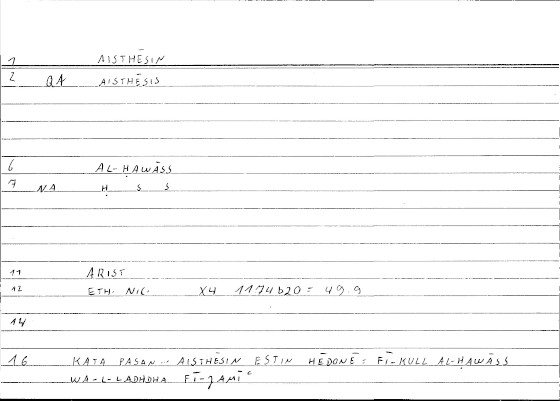 1 AISTHĒSIN
2 QA AISTHĒSIS
6 AL-ḤAWĀSS
7 NA Ḥ S S
11 ARIST
12 ETH. NIC. X4 1174b20 = 49.9
14
16 KATA PASAN - AISTHĒSIN ESTIN HĒDONĒ = FĪ-KULL AL-ḤAWĀSS
WA-L-LADHDHA FĪ-ǦAMĪʿ